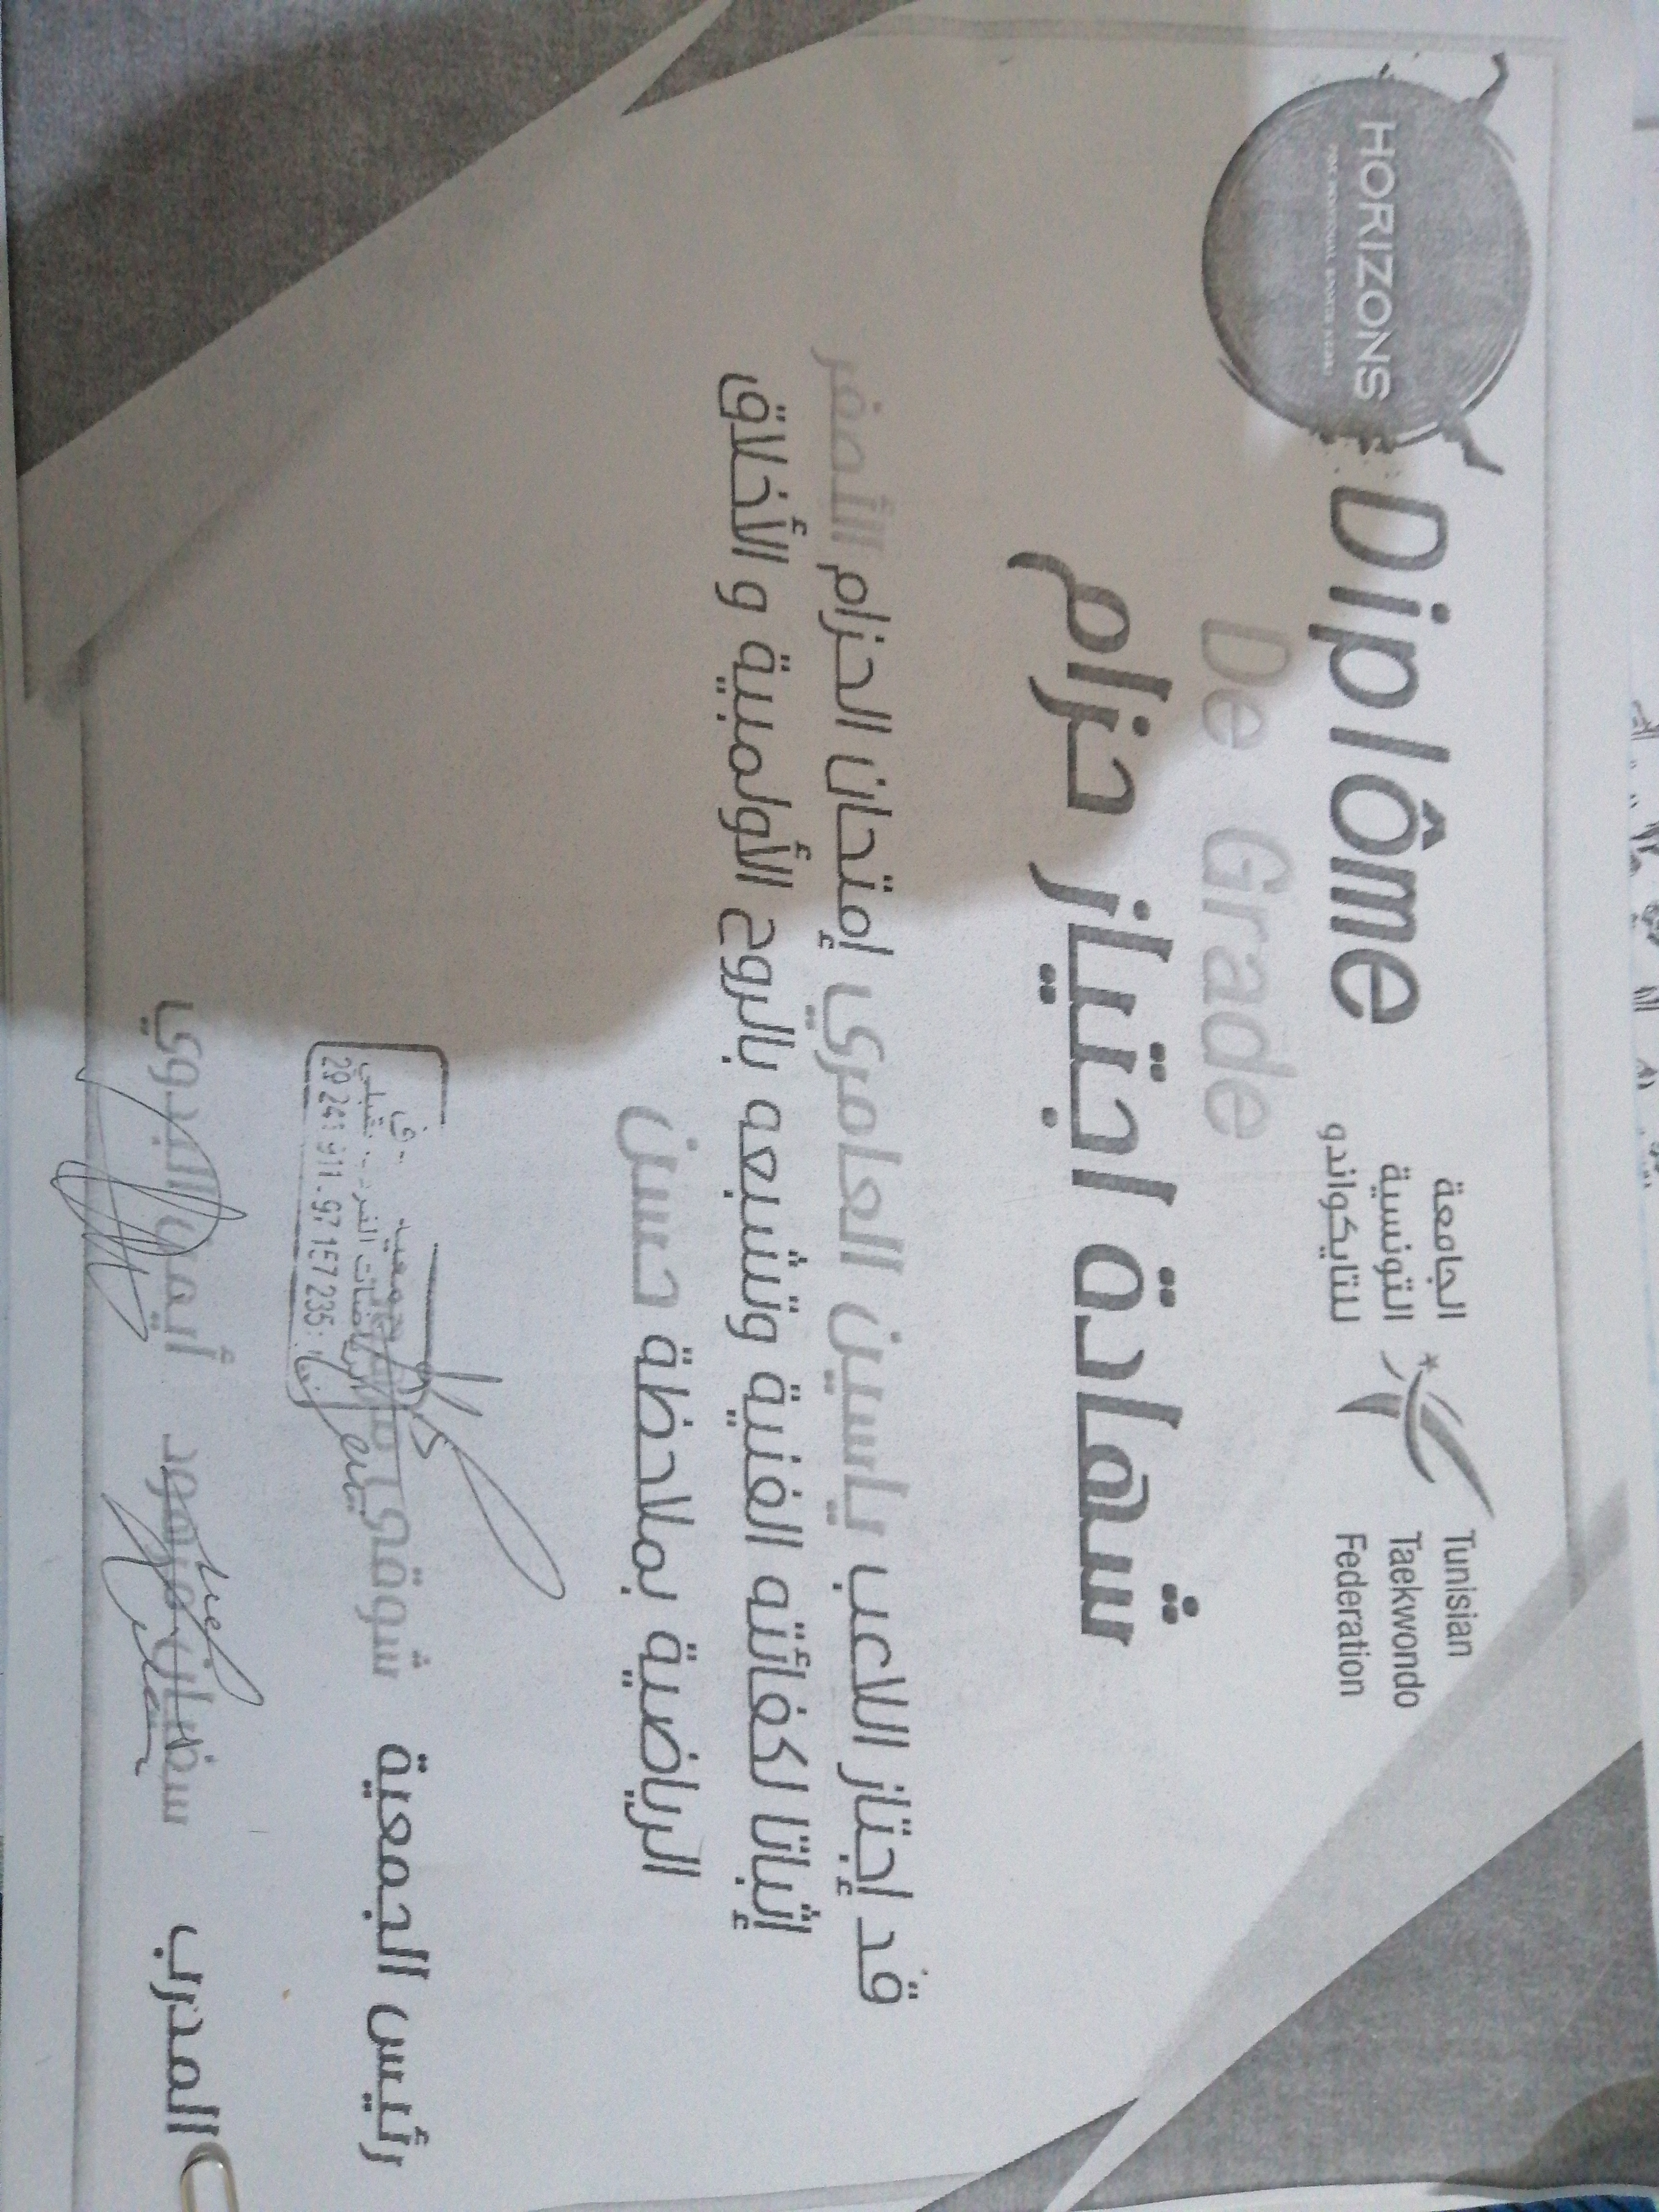 HORIZONS
Diplôme
De Grade
الجامعة
التونسية
للتايكواندو
Tunisian
Taekwondo
Federation
شهادة اجتياز حزام
قد إجتاز اللاعب ياسين العامري إمتحان الحزام الأصفر
إثباتا لكفائته الفنية وتشبعه بالروح الأولمبية و الأخلاق
الرياضية بملاحظة حسن
رئيس الجمعية شوقي
29 241 911 - 97 157 235
المدرب سفيان ميمود أيمن البدوي